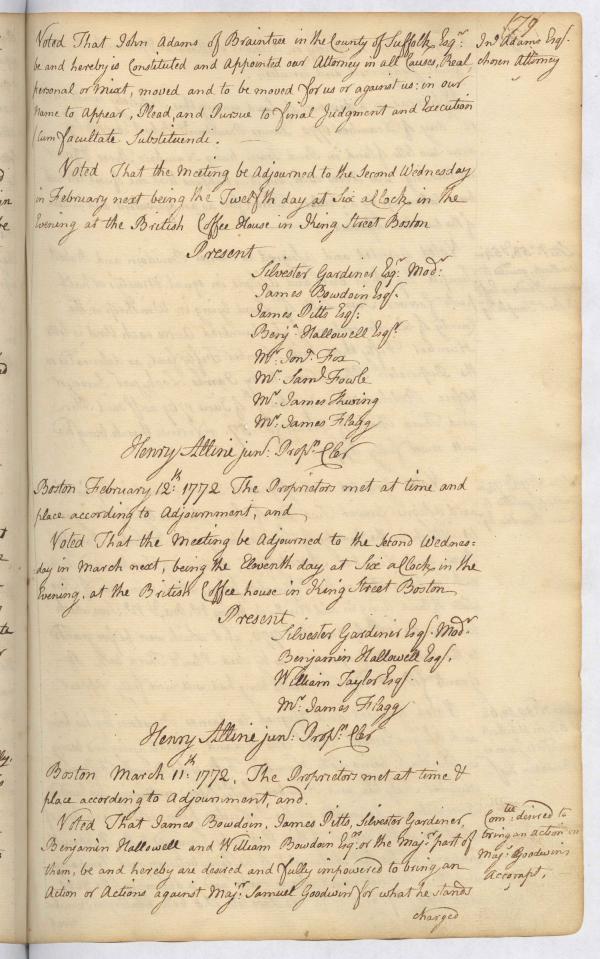 179
Voted That John Adams of Braintree in the County of Suffolk Esqr.
be and hereby is Constituted and Appointed our Attorney in all Causes, Real,
personal or Mixt, moved and to be moved for us or against us: in our
Name to Appear, Plead, and Pursue to final Judgment and Execution
Cum facultate Substituendi.
Jno. Adams Esqr.
chosen Attorney
Voted That the Meeting be Adjourned to the Second Wednesday
in February next being the Twelfth day at Six a Clock in the
Evening at the British Coffee House in King Street Boston
Present
Silvester Gardiner Esqr. Modr.
James Bowdoin Esqr.
James Pitts Esqr.
Benja. Hallowell Esqr.
Mr. Jona. Fox
Mr. Saml. Fowle
Mr. James Thwing
Mr. James Flagg
Henry Alline junr. Proprs. Cler
Boston February 12th. 1772 The Proprietors met at time and
place according to Adjournment, and
Voted That the Meeting be Adjourned to the Second Wednes=
day in March next, being the Eleventh day, at Six a Clock in the
Evening, at the British Coffee house in King Street Boston
Present
Silvester Gardiner Esqr. Modr.
Benjamin Hallowell Esqr.
William Taylor Esqr.
Mr. James Flagg
Henry Alline junr. Proprs. Cler
Boston March 11th. 1772. The Proprietors met at time &
place according to Adjournment, and.
Voted That James Bowdoin, James Pitts, Silvester Gardiner
Benjamin Hallowell and William Bowdoin Esqrs. or the Majr. part of
them, be and hereby are desired and fully impowered to bring an
Action or Actions against Majr. Samuel Goodwin for what he stands
charged
Comtee. desired to
bring an action on
Majr. Goodwins
Accompt.